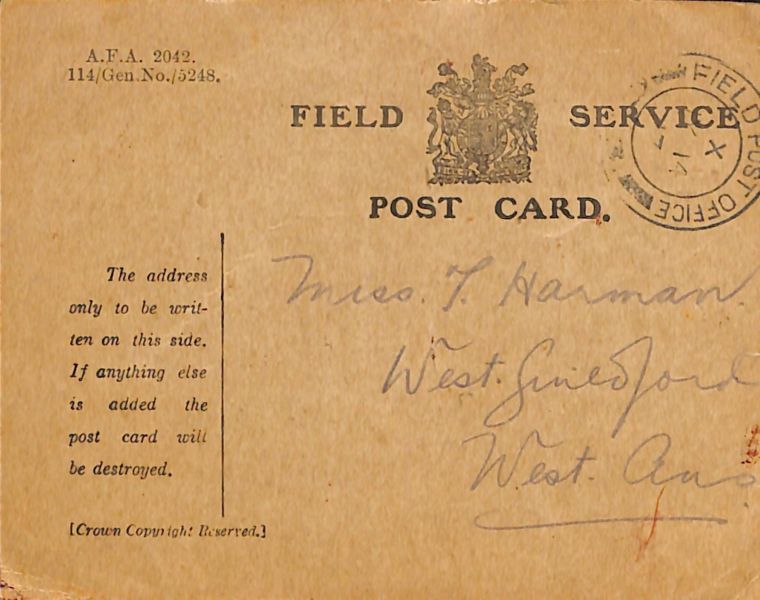 A.F.A. 2042.
114/Gen.No./5248.
FIELD SERVICE
POST CARD.
FIELD POST OFFICE
X
14
The address
only to be writ-
ten on this side.
If anything else
is added the
post card will
be destroyed.
[Crown Copyright Reserved.]
Miss. T. Harman.
West. Guildford
West. Aus